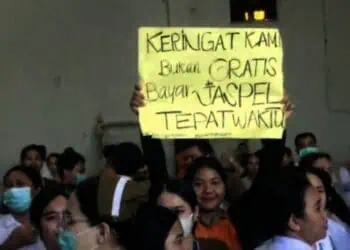 KERINGAT KAMI
Bukan GRATIS
Bayar JASPEL
TEPAT WAKTU